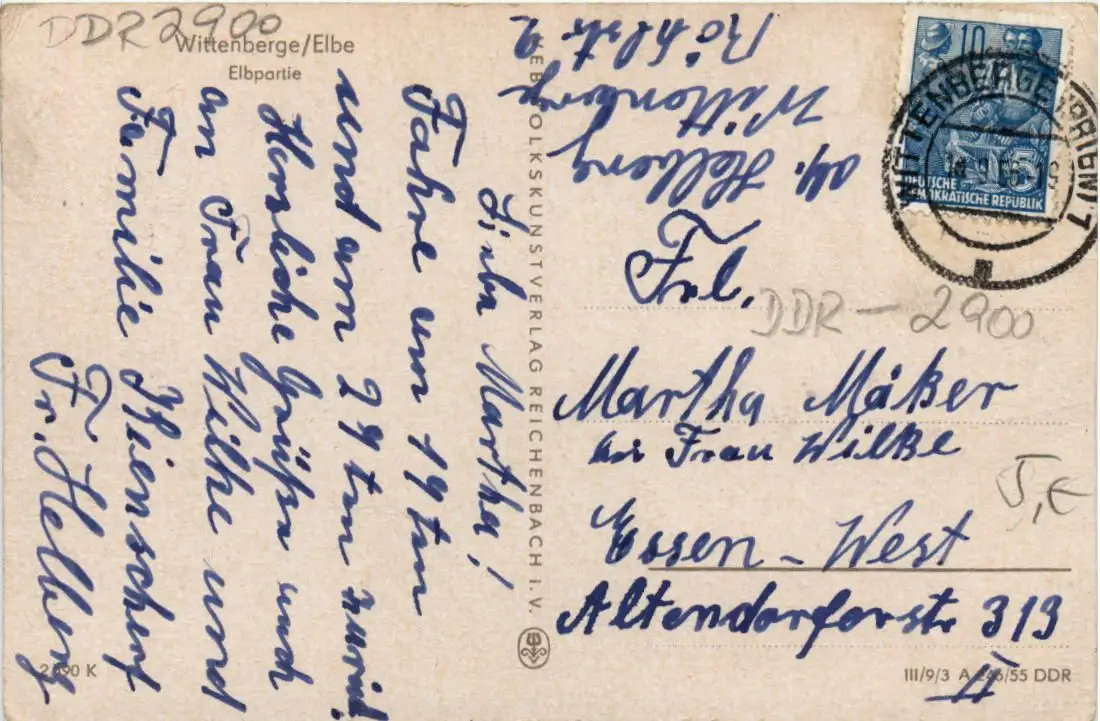 DDR 2900
Wittenberge/Elbe
Elbpartie
Liebe Martha!
Fahre um 19ten
und am 29ten zurück
Herzliche Grüße auch
an Frau Wilke und
Familie
Fr. Helberg
VEB VOLKSKUNSTVERLAG REICHENBACH i. V.
Helberg
Wittenberge
10
5
DEUTSCHE
DEMOKRATISCHE REPUBLIK
WITTENBERGE (PRIGN) 1
Frl.
DDR - 2900
Martha Mäker
bei Frau Wilke
Essen - West
Altendorferstr 313
II
2890 K
III/9/3 A 246/55 DDR